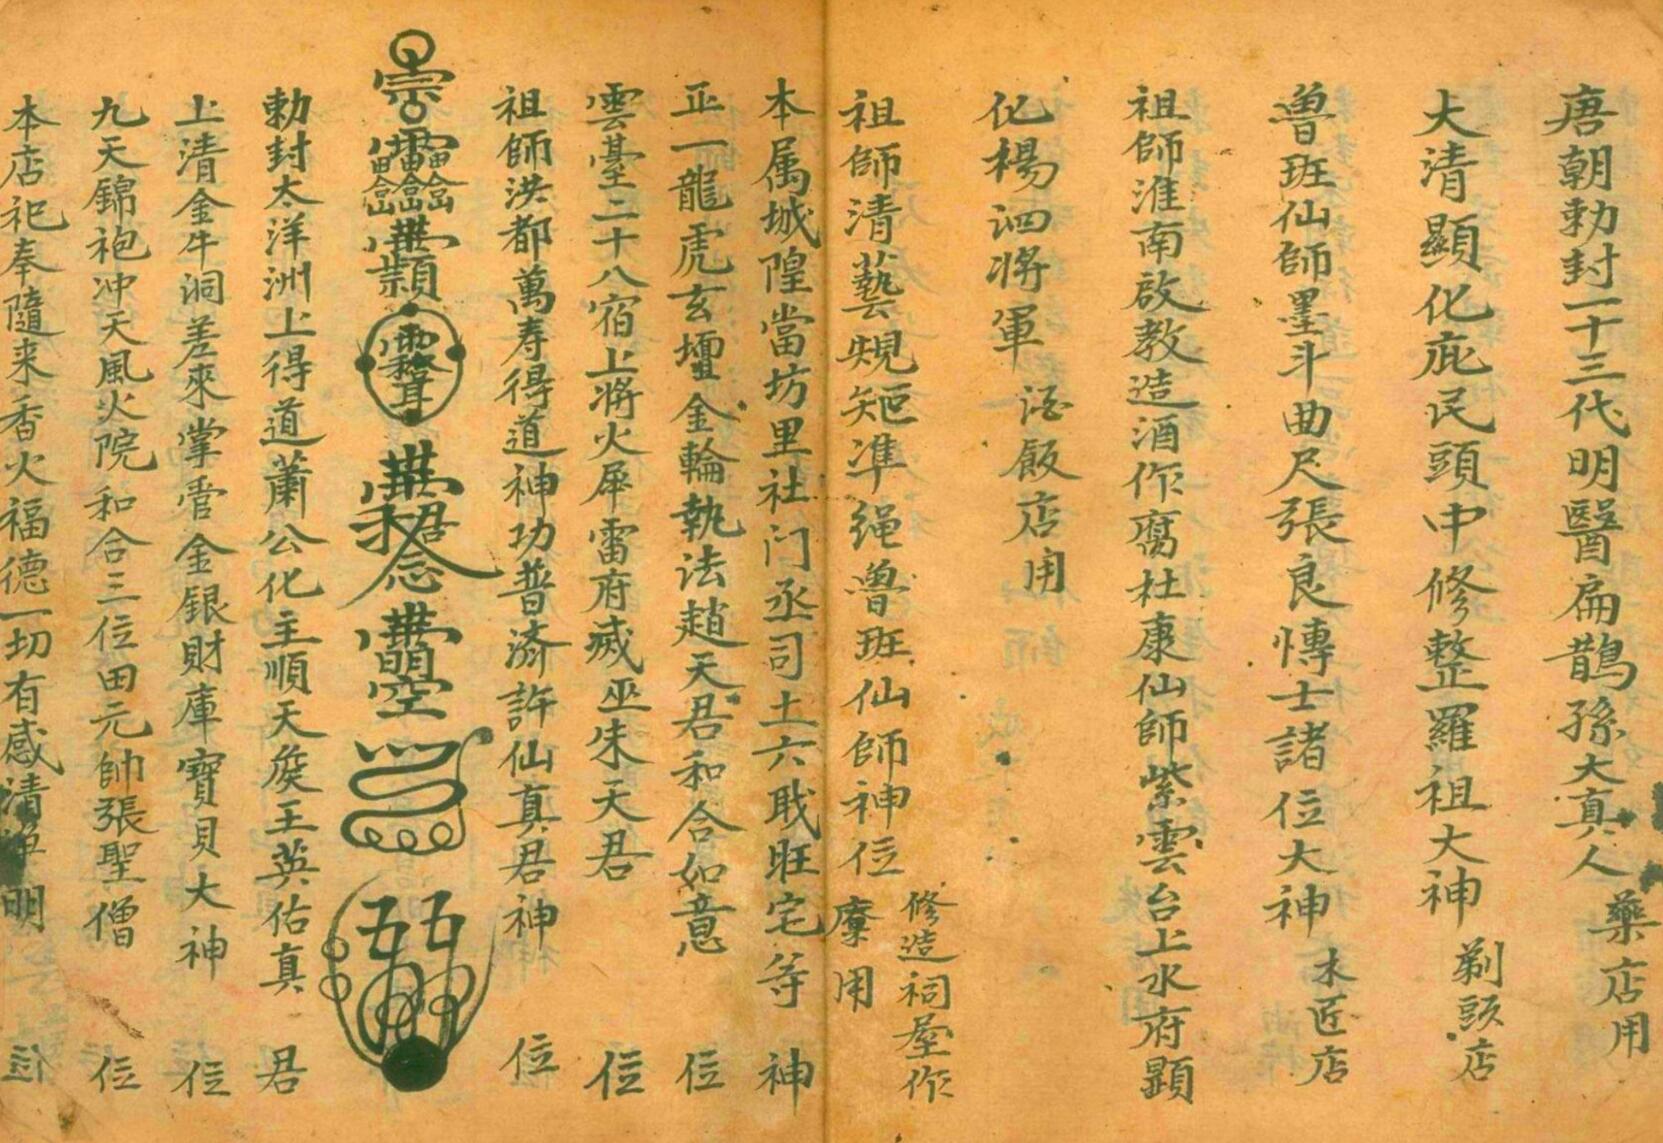 唐朝勅封一十三代明醫扁鵲孫大真人 藥店用
大清顯化庇民頭中修整羅祖大神 剃頭店
魯班仙師墨斗曲尺張良愽士諸位大神 木匠店
祖師淮南啟教造酒作腐杜康仙師紫雲台上水府顯
化楊泗将軍 酒飯店用
祖師清藝䂓矩準绳魯班仙師神位 修造祠屋作寮用
本属城隍當坊里社门丞司土六戝旺宅等神
正一龍虎玄壇金輪執法趙天君和合如意位
雲臺二十八宿上将火犀雷府威巫朱天君位
祖師洪都萬寿得道神功普済許仙真君神位
勅封太洋洲上得道蕭公化主順天矦王英佑真君
上清金牛洞差來掌管金銀財庫寶貝大神位
九天錦袍冲天風火院和合三位田元帥張聖僧位
本店祀奉隨来香火福德一切有感清淨明位